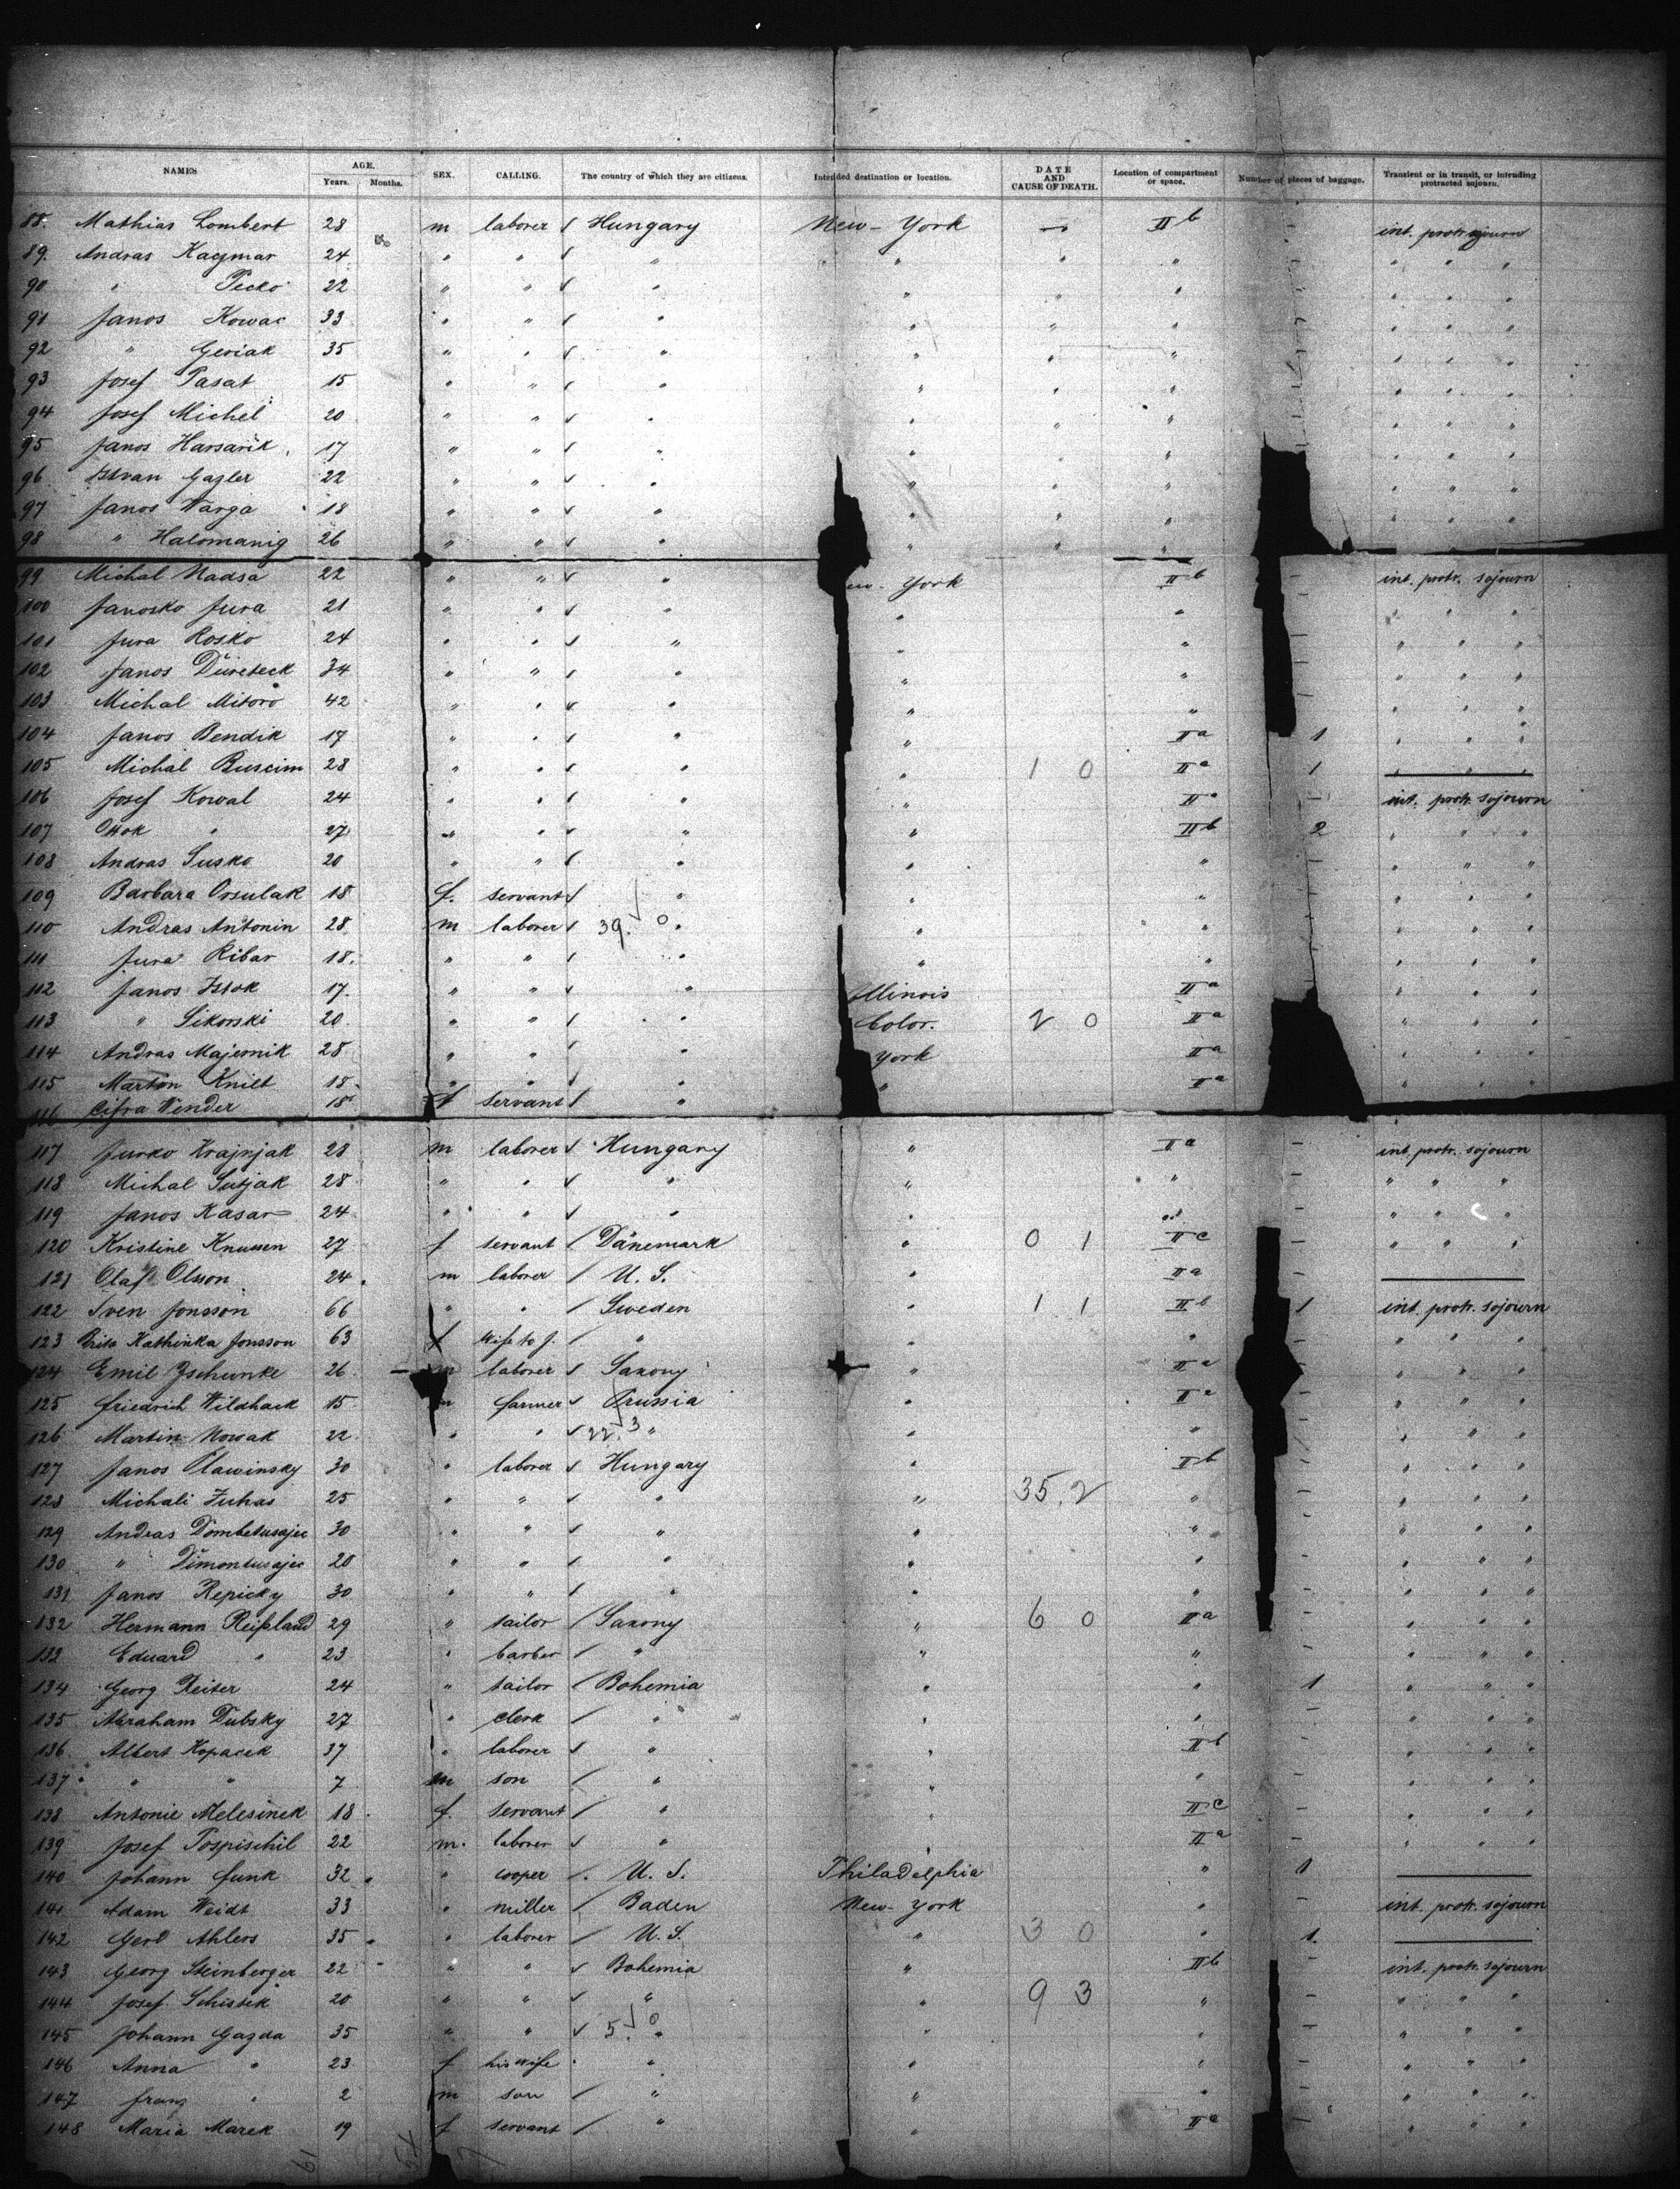 NAMES AGE. Years. Months. SEX. CALLING. The country of which they are citizens. Intended destination or location. DATE AND CAUSE OF DEATH. Location of compartment or space. Number of pieces of baggage. Transient or in transit, or intending protracted sojourn.
88. Mathias Lombert 28 m laborer / Hungary New-York — II b - int. protr. sojourn
89. Andras Kaczmar 24 " " / " " " " - " " "
90 " Pecko 22 " " / " " " " - " " "
91 Janos Kowac 33 " " / " " " " - " " "
92 " Geriak 35 " " / " " " " - " " "
93 Josef Pasat 15 " " / " " " " - " " "
94 Josef Michel 20 " " / " " " " - " " "
95 Janos Harsarik 17 " " / " " " " - " " "
96 Istvan Gagler 22 " " / " " " " " " "
97 Janos Warga 18 " " / " " " " " " "
98 " Halomanig 26 " " / " " " "
99 Michal Nadsa 22 " " / " ew-York II b - int. protr. sojourn
100 Janosko Jura 21 " " / " " " - " " "
101 Jura Rosko 24 " " / " " " - " " "
102 Janos Düreteck 34 " " / " " " - " " "
103 Michal Mitoro 42 " " / " " " - " " "
104 Janos Bendik 17 " " / " " II a 1 " " "
105 Michal Buscim 28 " " / " " 1 0 II a 1 " " "
106 Josef Kowal 24 " " / " " II a - int. protr. sojourn
107 " 27 " " / " " II b 2 " " "
108 Andras Susko 20 " " / " " " - " " "
109 Barbara Orsulak 18 f. servant / " " " - " " "
110 Andras Antonin 28 m laborer / 39. 0 " " " - " " "
111 Jura Ribar 18. " " / " " " - " " "
112 Janos Istok 17. " " / " Illinois II a " " "
113 " Sikorski 20. " " / " Color. 2 0 II a " " "
114 Andras Majernik 28 " " / " York II a " " "
115 Marton Knilt 18. " " / " " II a " " "
116 Cifra Wender 18 f servant / "
117 Jurko Krajnjak 28 m laborer / Hungary " II a - int. protr. sojourn
118 Michal Sutjak 28 " " / " " " - " " "
119 Janos Kasar 24 " " / " " - " " "
120 Kristine Knussen 27 f servant / Dänemark " 0 1 II c - " " "
121 Olaf Olsson 24 m laborer / U. S. " II a - —
122 Sven Jonsson 66 " " / Sweden " 1 1 II b 1 int. protr. sojourn
123 Kathinka Jonsson 63 f wife to J. / " " " " " "
124 Emil Zschunke 26 m laborer / Saxony " II a " " "
125 Friedrich Wildhack 15 m farmer / Prussia " II a " " "
126 Martin Nowak 22 " " / 22. 3 " " " " " "
127 Janos Slawinsky 30 " laborer / Hungary " II b " " "
128 Michali Juhas 25 " " / " " 35. 2 " " " "
129 Andras Dombetusajec 30 " " / " " " " " "
130 " Dimontusajec 20 " " / " " " - " " "
131 Janos Repicky 30 " " / " " " - " " "
132 Hermann Reißland 29 " tailor / Saxony " 6 0 II a - " " "
133 Eduard " 23 " barber / " " " - " " "
134 Georg Reiter 24 " tailor / Bohemia " " 1 " " "
135 Abraham Dubsky 27 " clerk / " " " - " " "
136 Albert Kopacek 37 " laborer / " " II b - " " "
137 " " 7 m son / " " " - " " "
138 Antonie Melesinek 18 f. servant / " " II c - " " "
139 Josef Pospischil 22 m. laborer / " " II a - " " "
140 Johann Funk 32 " cooper / U. S. Philadelphia " 1 —
141 Adam Weidt 33 " miller / Baden New-York " - int. protr. sojourn
142 Gerd Ahlers 35 " laborer / U. S. " 3 0 " 1. —
143 Georg Steinberger 22 " " / Bohemia " II b - int. protr. sojourn
144 Josef Schistek 20 " " / " " 9 3 " - " " "
145 Johann Gazda 35 " " / 5. 0 " " " - " " "
146 Anna " 23 f his wife " " " - " " "
147 Franz " 2 m son / " " " - " " "
148 Maria Marek 19 f servant / " " II c - " " "
61 54 7